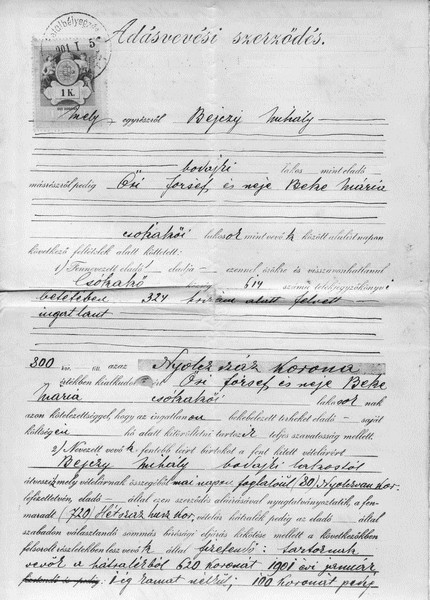 901 I 5
1 K.
Adásvevési szerződés.
mely egyrészről Bejczy Mihály
bodajki lakos mint eladó
másrészről pedig Ősi József és neje Beke Mária
csókakői lakosok mint vevők között alulirt napon
következő feltételek alatt köttetett:
1) Fennevezett eladó eladja ezennel, örökre és visszavonhatlanul
Csókakő 614 számú telekjegyzőkönyvi
betétében 324 hrszám alatt felvett
ingatlant
800 kor. azaz Nyolcz száz Korona
értékben kialkudott Ősi József és neje Beke
Mária csókakői lakosoknak
azon kötelezettséggel, hogy az ingatlanon bekebelezett terheket eladó saját
költségén hó alatt kitöröltetni tartozik teljes szavatosság mellett.
2) Nevezett vevők fentebb leirt birtokot a fent kitett vételárért
Bejczy Mihály bodajki lakostól
átveszik mely vételárnak összegéből mai napon foglalóul (80) Nyolcvan kor.
lefizettetvén, eladó által ezen szerződés aláirásával nyugtatványoztatik, a fen-
maradt (720) Hétszázhusz kor. vételár hátralék pedig az eladó által
szabadon választandó sommás birósági eljárás kikötése mellett a következőkben
felsorolt részletekben lesz vevők által fizetendő: tartoznak
vevők a hátralékból 620 koronát 1901 évi január
fizetendő és pedig: ig kamat nélkül; 100 koronát pedig